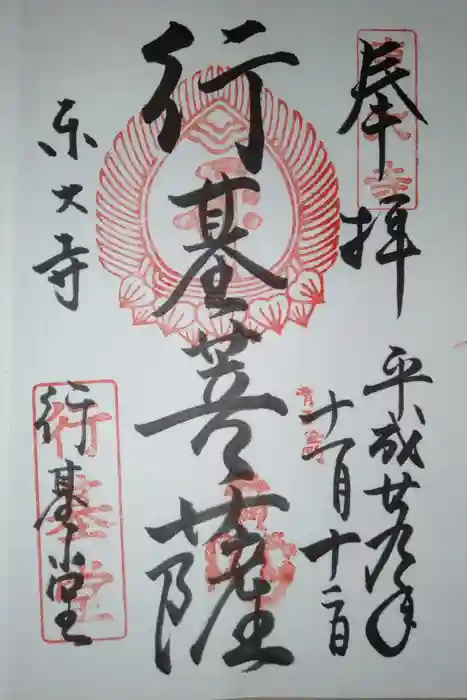 奉拝
平成廿九年
十一月十二日
行基菩薩
東大寺
行基堂
行基堂